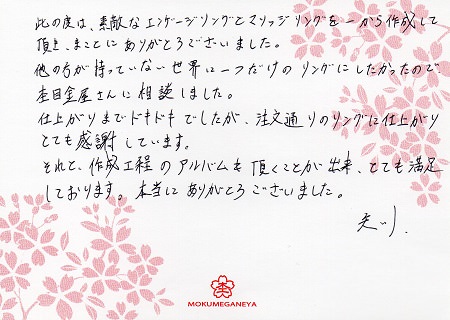 此の度は、素敵なエンゲージリングとマリッジリングを一から作成して
頂き、まことにありがとうございました。
他の方が持っていない世界に一つだけのリングにしたかったので
杢目金屋さんに相談しました。
仕上がりまでドキドキでしたが、注文通りのリングに仕上がり
とても感謝しています。
それと、作成工程のアルバムも頂くことが出来、とても満足
しております。本当にありがとうございました。
MOKUMEGANEYA